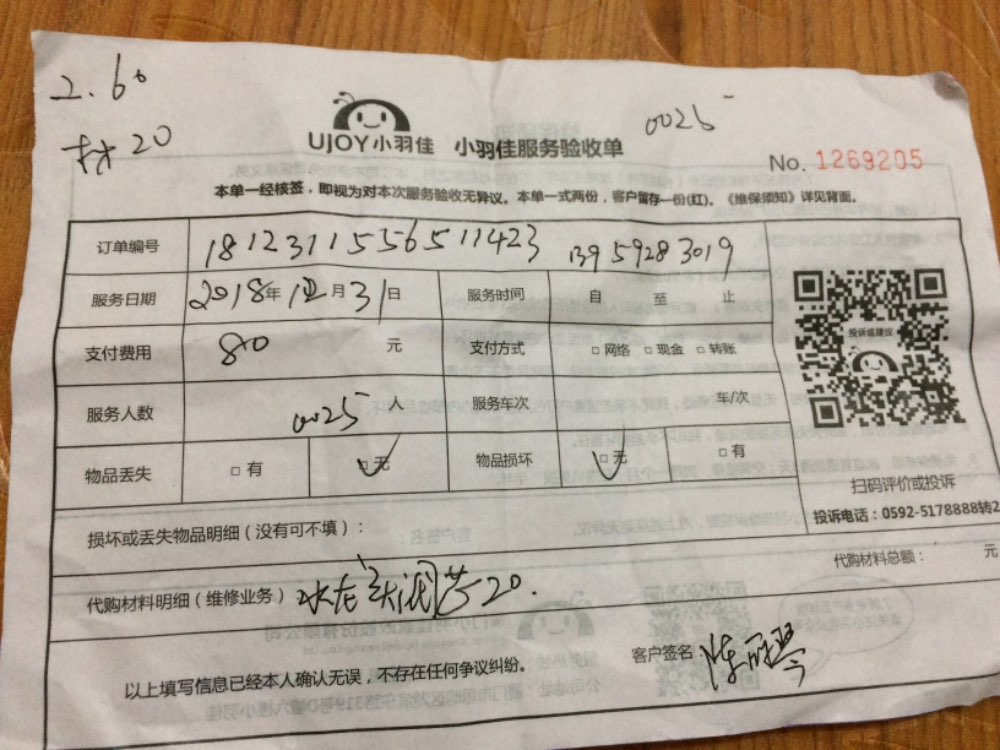 2.60
材20
0025
UJOY小羽佳 小羽佳服务验收单
No. 1269205
本单一经核签，即视为对本次服务验收无异议。本单一式两份，客户留存一份(红)。《维保须知》详见背面。
订单编号 18123115556511423 13959283019
服务日期 2018年12月31日 服务时间 自 至 止
支付费用 80 元 支付方式 □网络 □现金 □转账
服务人数 0025 人 服务车次 车/次
物品丢失 □有 □无 物品损坏 □无 □有
投诉或建议
扫码评价或投诉
投诉电话：0592-5178888转2
损坏或丢失物品明细（没有可不填）：
代购材料总额： 元
代购材料明细（维修业务） 水龙头阀芯20.
以上填写信息已经本人确认无误，不存在任何争议纠纷。
客户签名 陈